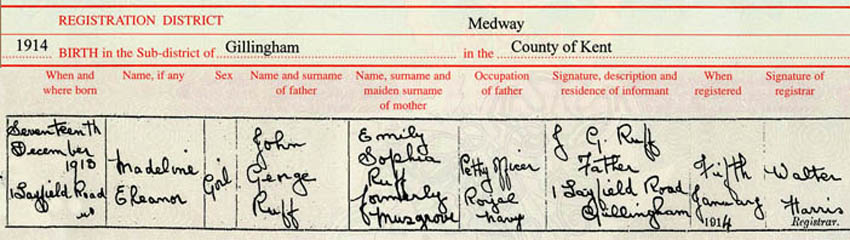 REGISTRATION DISTRICT Medway
1914 BIRTH in the Sub-district of Gillingham in the County of Kent
When and
where born
Name, if any
Sex
Name and surname
of father
Name, surname and
maiden surname
of mother
Occupation
of father
Signature, description and
residence of informant
When
registered
Signature of
registrar
Seventeenth
December
1913
1 Layfield Road
Madeline
Eleanor
Girl
John
George
Ruff
Emily
Sophia
Ruff
formerly
Musgrove
Petty Officer
Royal
Navy
J G. Ruff
Father
1 Layfield Road
Gillingham
Fifth
January
1914
Walter
Harris
Registrar.